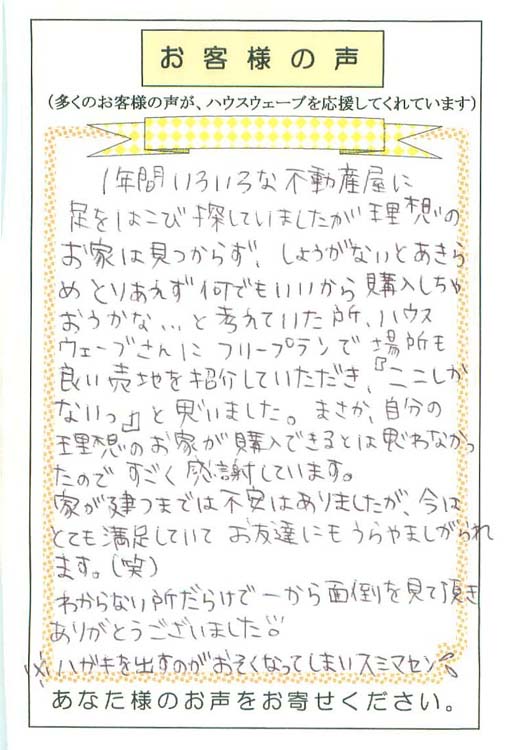 お客様の声
(多くのお客様の声が、ハウスウェーブを応援してくれています)
1年間いろいろな不動産屋に
足をはこび探していましたが理想の
お家は見つからず、しょうがないとあきら
めとりあえず何でもいいから購入しちゃ
おうかな...と考えていた所、ハウス
ウェーブさんにフリープランで場所も
良い売地を紹介していただき、『ここしか
ないっ』と思いました。まさか、自分の
理想のお家が購入できるとは思わなかっ
たのですごく感謝しています。
家が建つまでは不安はありましたが、今は
とても満足していてお友達にもうらやましがられ
ます。(笑)
わからない所だらけで一から面倒を見て頂き
ありがとうございました!!
※ハガキを出すのがおそくなってしまいスミマセン
あなた様のお声をお寄せください。